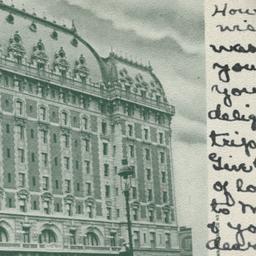 How
wis
was
you
you
delig
trip
Give
of lo
to M
d yo
dear